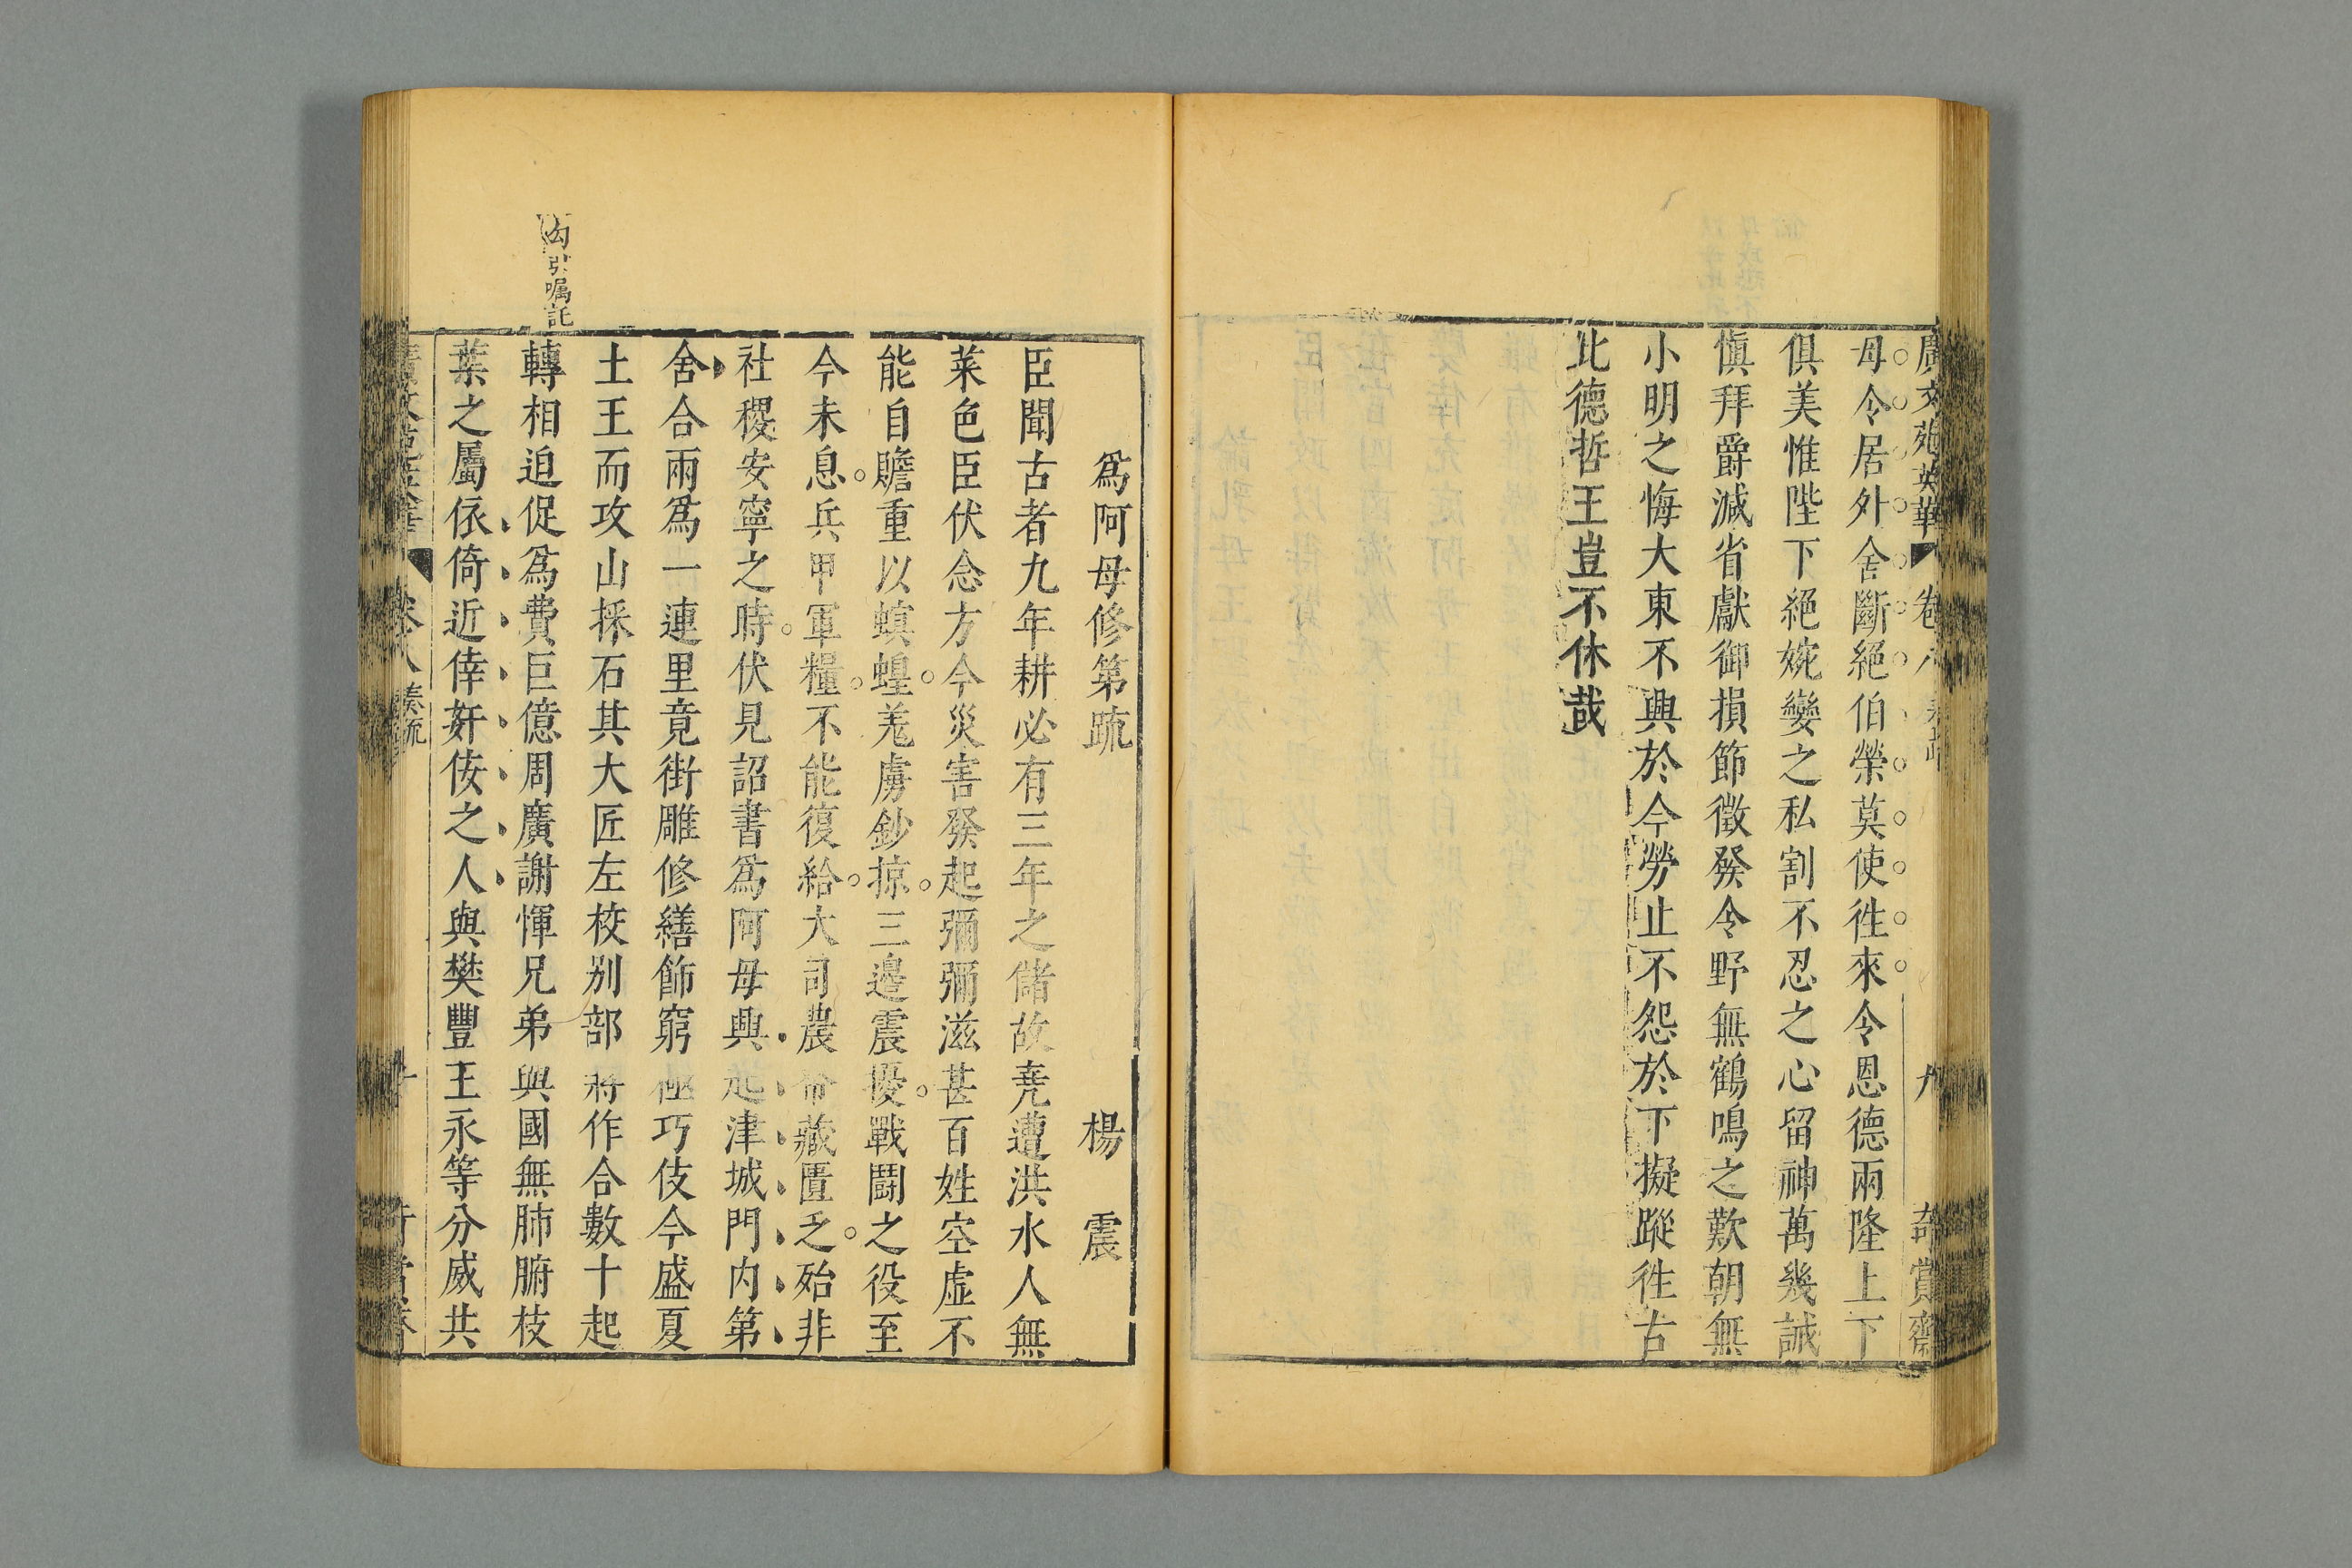 廣文苑英華 卷八 奏疏 九 奇賞齋
母令居外舍斷絕伯榮莫使徃來令恩德兩隆上下
俱美惟陛下絕婉孌之私割不忍之心留神萬幾誡
愼拜爵減省獻御損節徵發令野無鶴鳴之歎朝無
小明之悔大東不興於今勞止不怨於下擬蹤徃古
此德哲王豈不休哉
爲阿母修第疏 楊震
臣聞古者九年耕必有三年之儲故堯遭洪水人無
菜色臣伏念方今災害發起彌彌滋甚百姓空虛不
能自贍重以螟蝗羌虜鈔掠三邊震擾戰鬭之役至
今未息兵甲軍糧不能復給大司農帑藏匱乏殆非
社稷安寧之時伏見詔書爲阿母興起津城門内第
舍合兩爲一連里竟街雕修繕飾窮極巧伎今盛夏
土王而攻山採石其大匠左校别部將作合數十起
勾引嘱託
轉相迫促爲費巨億周廣謝惲兄弟與國無肺腑枝
葉之屬依倚近倖奸佞之人與樊豐王永等分威共
卷八 奏疏